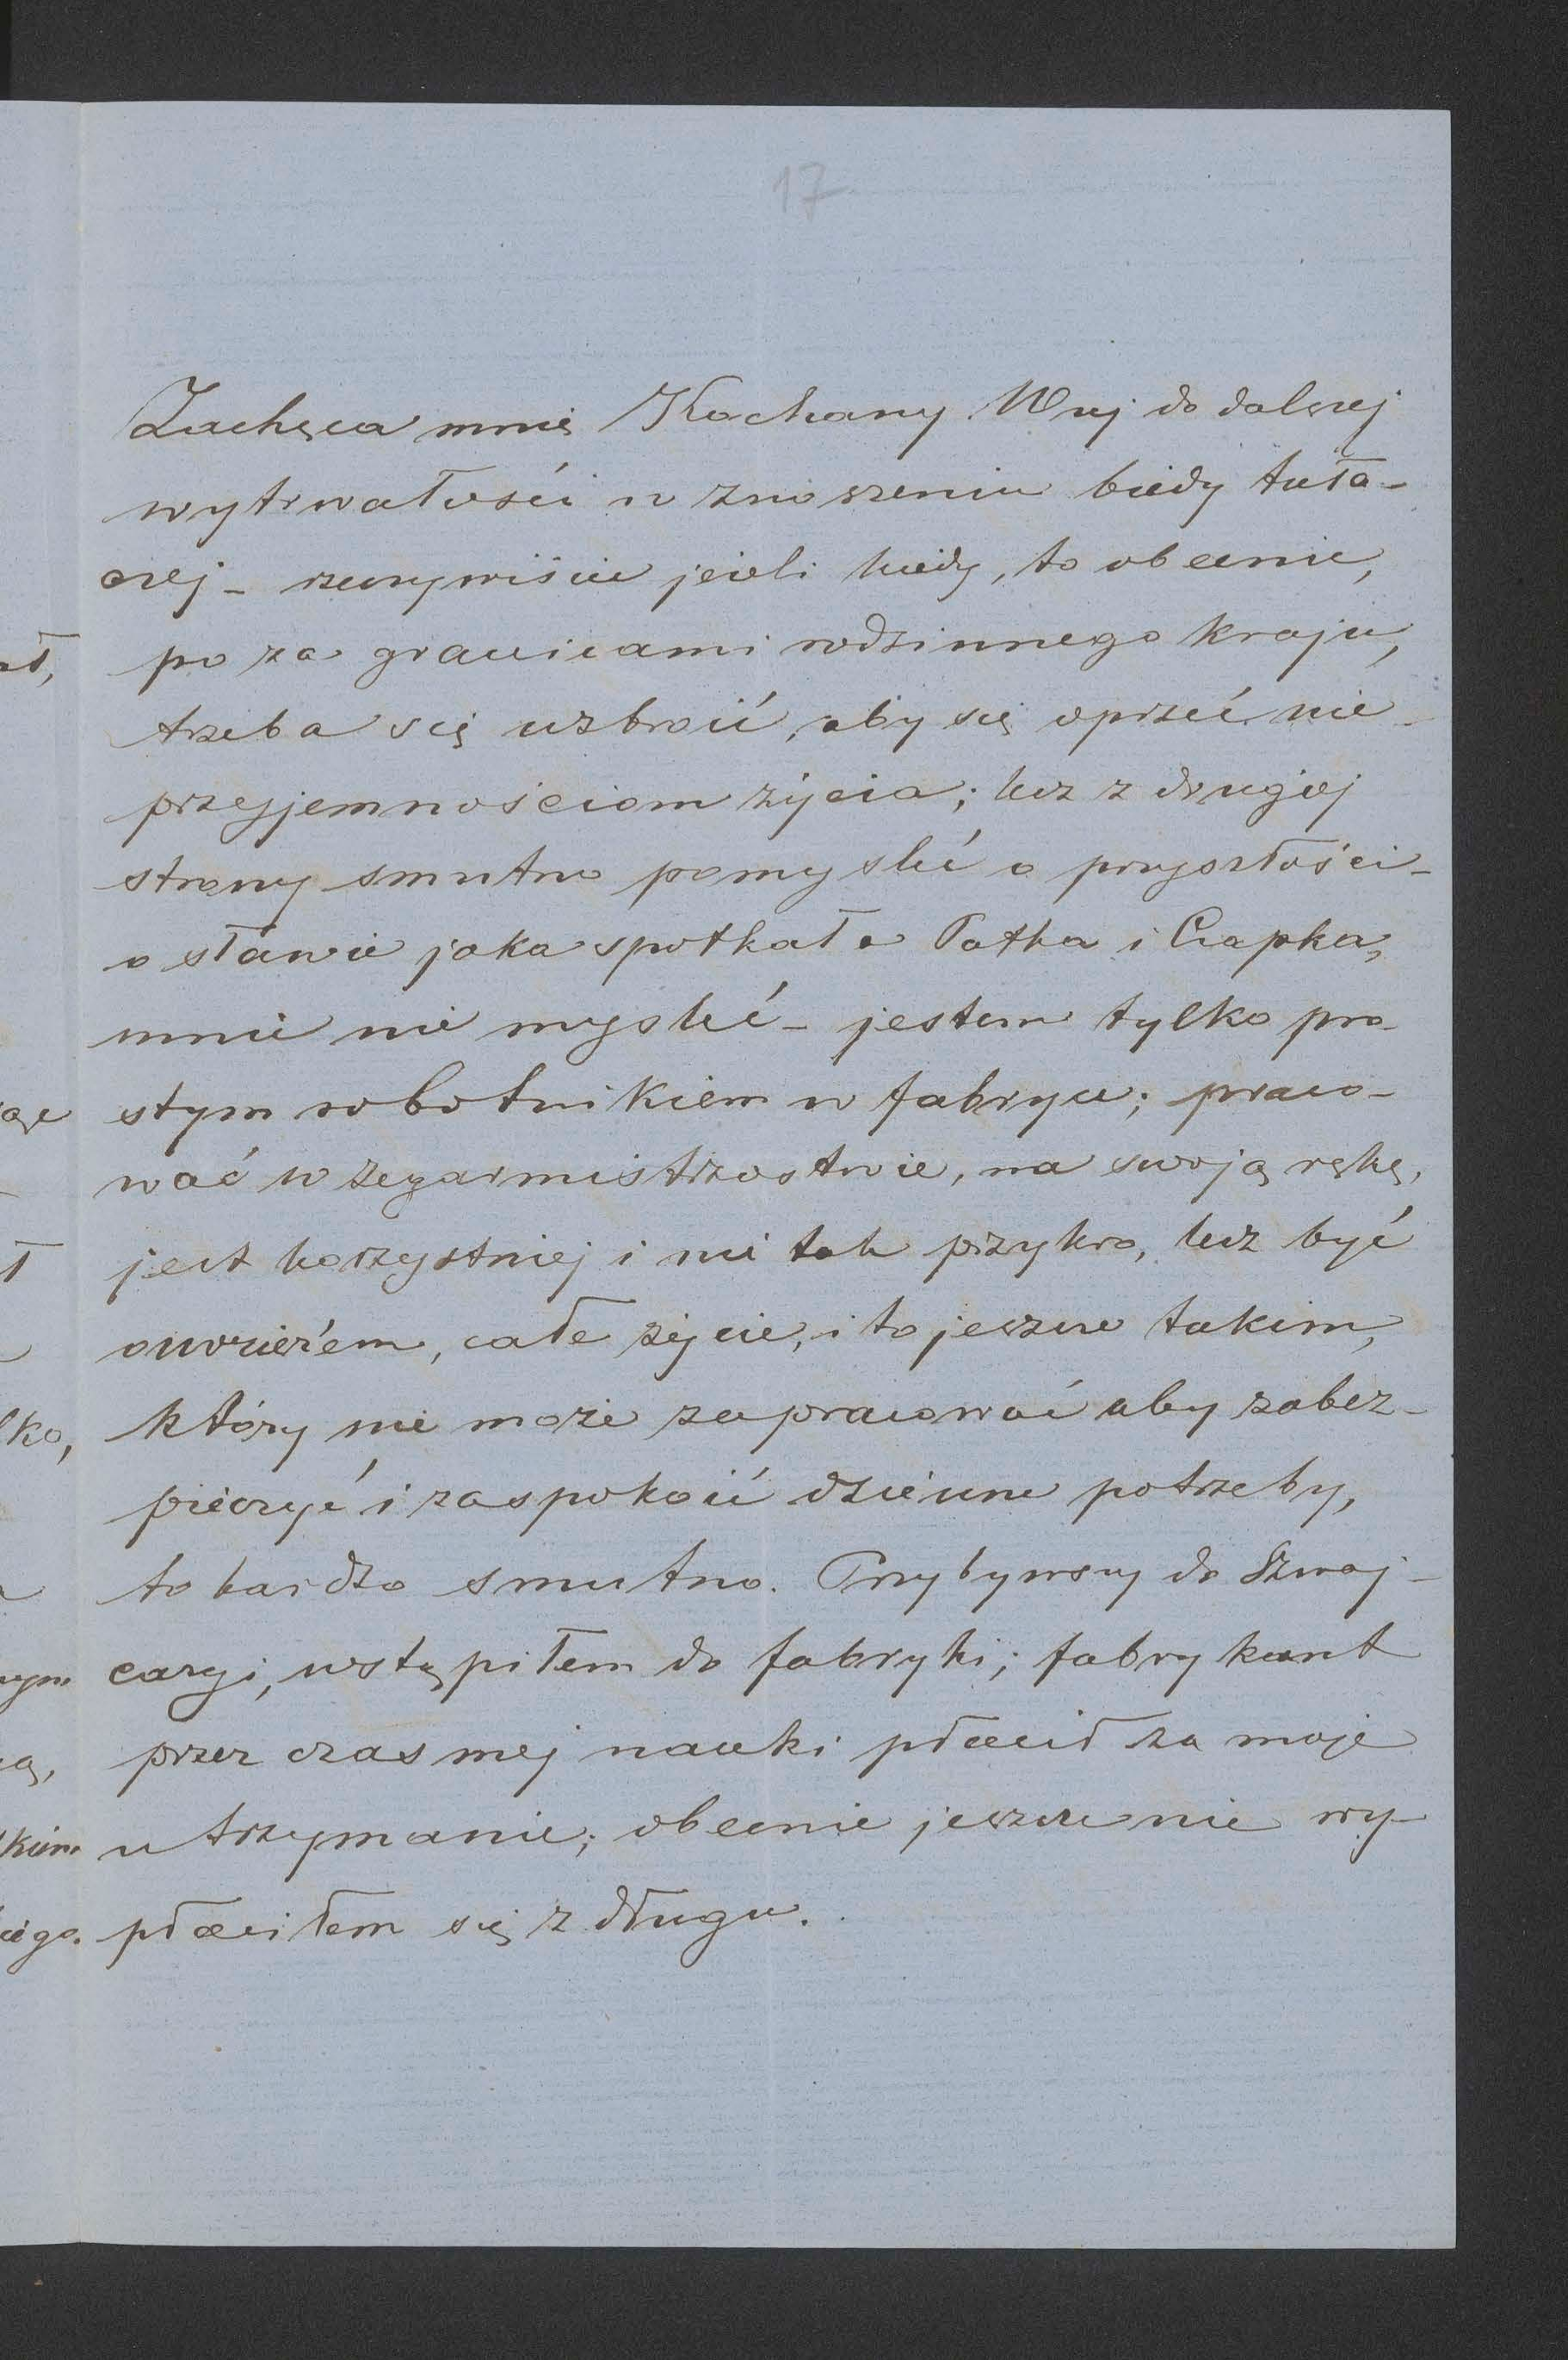 17
Zachęca mnie Kochany Wuj do dalszej
wytrwałości w znoszeniu biedy tuła-
czej - rzeczywiście jeżeli kiedy, to obecnie,
po za granicami rodzinnego kraju,
trzeba się uzbroić, aby się oprzeć nie-
przyjemnościom życia; lecz z drugiej
strony smutno pomyśleć o przyszłości -
o sławie jaka spotkała Patka i Czapka,
mnie nie myśleć - jestem tylko pro-
stym robotnikiem w fabryce; praco-
wać w zegarmistrzostwie, na swoją rękę,
jest korzystniej i nie tak przykro, lecz być
ouvrier'em, całe życie, i to jeszcze takim,
który nie może zapracować aby zabez-
pieczyć i zaspokoić dzienne potrzeby,
to bardzo smutno. Przybywszy do Szwaj-
caryi, wstąpiłem do fabryki; fabrykant
przez czas mej nauki płacił za moje
utrzymanie; obecnie jeszcze nie wy-
płaciłem się z długu.